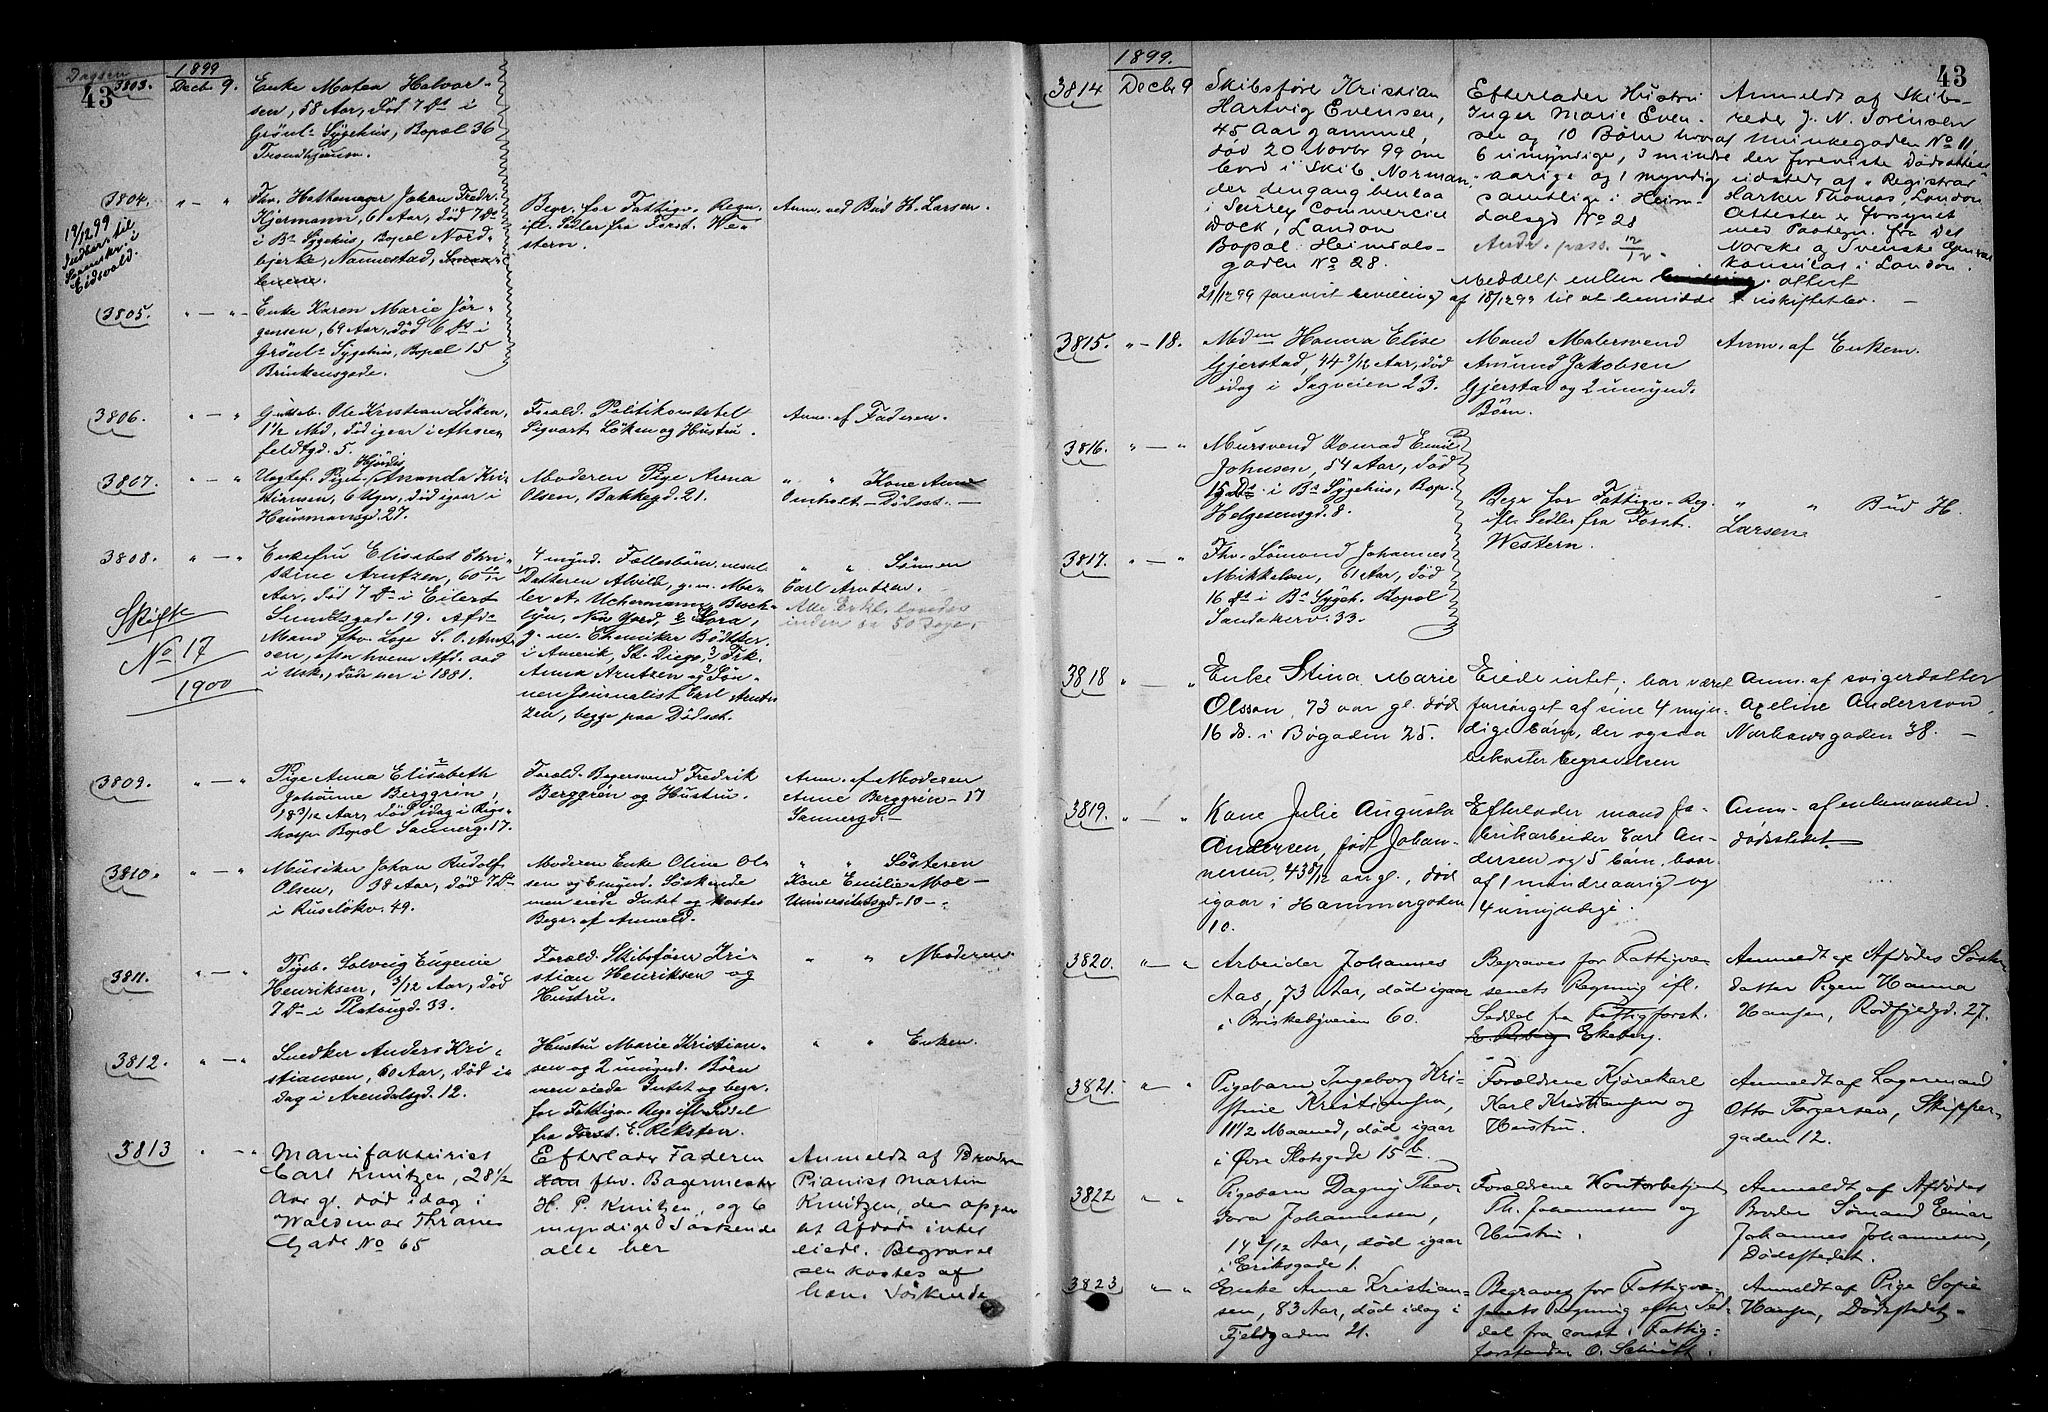 43
Dagsen
1899
3803. Decbr. 9.
Enke Maten Halvor-
sen, 58 Aar, død 7 Ds i
Grönl. Sygehus, Bopæl 36
Trondhjemsv.
3804.
19/12 99
Eidsvold.
Fhv. Hattemager Johan Fredr.
Kjermann, 61 Aar, død 7 Ds
i Bs Sygehus, Bopæl Nord-
bjerke, Nannestad,
Begr. for Fattigv. Regn.
ifl. Sedler fra Forst. We-
stern.
Anm. ved Bud H. Larsen.
3805.
Enke Karen Marie Jör-
gensen, 69 Aar, død 6 Ds i
Grönl. Sygehus, Bopæl 15
Brinkensgade.
3806.
Gutteb. Ole Kristian Løken,
1½ Md, död igaar i Ahle-
feldtgd. 5.
Foræld. Politikonstabel
Sigvart Löken og Hustru.
Anm. af Faderen.
3807.
Hjördis
Uegtef. Pige Amanda Kri-
stiansen, 6 Uger, död igaar i
Hausmansgd. 27.
Moderen Pige Anna
Olsen, Bakkegd. 21.
" " Kone Anne
Omholt – Dödsst. –
3808.
Skifte
No 17
1900
Enkefru Elisabet Chri-
stine Arntzen, 60 10/12
Aar, död 7 Ds i Eilert
Sundtsgade 19. Afd.
Mand fhv. Loge S. O. Arnt-
sen, efter hvem Afd. sad
i Usk., døde her i 1881.
4 mynd. Fællesbörn, nemlig
Datteren Alvilde, g. m. Ma-
ler A. Uchermann, Besch-
byen, New Gard, 2 Thora,
g. m. Chemiker Bödtker
i Amerik, St. Diego, 3 Frk.
Anna Arntzen og Søn-
nen Journalist Carl Arnt-
zen, begge paa Dödsst.
" " Sönnen
Carl Arntzen. –
inden 50 Dage.
3809.
Pige Anna Elisabeth
Johanne Berggrén,
18 3/12 Aar, död idag i Rigs-
hosp. Bopæl Sannerg. 17.
Foræld. Bagersvend Fredrik
Berggrén og Hustru.
Anm. af Moderen
Anne Berggrén – 17
Sannergd. –
3810.
Musiker Johan Rudolf
Olsen, 38 Aar, död 7 Ds
i Ruselökv. 49.
Moderen Enke Oline Ol-
sen og 2 mynd. Söskende
men eiede Intet og kostes
Begr. af Anmeld.
" " Søsteren
Kone Emilie Moe –
Universitetsgd. 10 –.
3811.
Pigeb. Solveig Eugenie
Henriksen, 3/12 Aar, død
7 Ds i Platougd. 33.
Foræld. Skibsfører Kri-
stian Henriksen og
Hustru.
" " Moderen
3812.
Snedker Anders Kri-
stiansen, 60 Aar, död i
dag i Arendalsgd. 12.
Hustru Marie Kristian-
sen og 2 umynd. Börn
men eiede Intet og begr.
for Fattigv. Reg. ifl. Seddel
fra Forst. E. Reksten.
" " Enken.
3813
Manufakturist
Carl Knutzen, 28 ½
Aar gl. død idag i
Waldemar Thranes
Gade No 65
Efterlader Faderen
fhv. Bagermester
H. P. Knutzen, og 6
myndige Søskende
alle her
Anmeldt af Broderen
Pianist Martin
Knutzen, der opgav
at Afdøde intet
eiede. Begravel-
sen kostes af
hans Søskende
43
1899.
3814 Decbr 9
Skibsfører Kristian
Hartvig Evensen,
45 Aar gammel,
død 20 Novbr 99 om
bord i Skib. Norman,
der dengang henlaa
i Surrey Commercial
Dock, London
Bopæl: Heimdals-
gaden No 28.
Efterlader Hustru
Inger Marie Even-
sen og 10 Børn hvoraf
6 umyndige, 3 mindre
aarige og 1 myndig
samtlige i Heim-
dalsgd No 28
Andr. pass. 12/12.
Anmeldt af Skibs-
reder J. N. Sørensen
Munkegaden No 11,
der foreviste Dødsattest
udstedt af "Registrar"
Harker Thomas, London
Attesten er forsynet
med Paategn. fra Det
Norske og Svenske General
konsulat i London.
Meddelt enken attest
21/12 99 forevist bevilling af 18/12 99 til at hensidde i uskiftet bo. –
3815. " – 18.
Madmen Hanna Elise
Gjerstad, 44 9/12 Aar, død
idag i Sagveien 23.
Mand Malersvend
Amund Jakobsen
Gjerstad og 2 umynd.
Børn.
Anm. af Enkem.
3816.
Mursvend Konrad Emil
Johnsen, 54 Aar, död
15 Ds i Bs Sygehus, Bop.
Helgesensgd. 8.
Begr. for Fattigv. Reg.
ifl. Sedler fra Forst.
Western.
" " Bud H.
Larsen
3817.
Fhv. Sömand Johannes
Mikkelsen, 61 Aar, död
16 Ds i Bs Sygeh. Bopæl
Sandakerv. 33.
3818
Enke Stina Marie
Olsson, 73 aar gl. død
16 ds. i Bøgaden 25.
Eiede intet; har været
forsørget af sine 4 myn-
dige børn, der ogsaa
bekoster begravelsen
Anm. af svigerdatter
Axeline Andersson,
Norbewsgaden 38. –
3819.
Kone Julie Augusta
Andersen, født Johan-
nesen, 43 8/12 aar gl., død
igaar i Hammergaden
10.
Efterlader mand fa-
brikarbeider Carl An-
dersen og 5 børn, hvor-
af 1 mindreaarig og
4 umyndige.
Anm. af enkemanden
dødsstedet.
3820.
Arbeider Johannes
Aas, 73 Aar, død igaar
i Briskebyveien 60.
Begraves for Fattigvæ-
senets Regning ifl.
Seddel fra Fattigforst.
Ekeberg.
Anmeldt af Afdødes Søster-
datter Pigen Hanna
Hansen, Rødfyldgd. 27.
3821.
Pigebarn Ingeborg Kri-
stine Kristiansen,
11 1/2 Maaned, død igaar
i Øvre Slotsgade 15 b.
Forældrene Kjørekarl
Karl Kristiansen og
Hustru.
Anmeldt af Lagermand
Otto Torgersen, Skipper-
gaden 12.
3822
Pigebarn Dagny Theo-
dora Johannesen,
14 2/12 Aar, død igaar
i Eriksgade 1.
Forældrene Kontorbetjent
Th. Johannesen og
Hustru.
Anmeldt af Afdødes
Broder Sømand Einar
Johannes Johannesen,
Dødsstedet.
3823
Enke Anne Kristian-
sen, 83 Aar, død idag i
Fjeldgaden 21.
Begraves for Fattigvæ-
senets Regning efter Sed-
del fra const. Fattig-
forstander O. Schiött.
Anmeldt af Pige Sofie
Hansen, Dødsstedet.